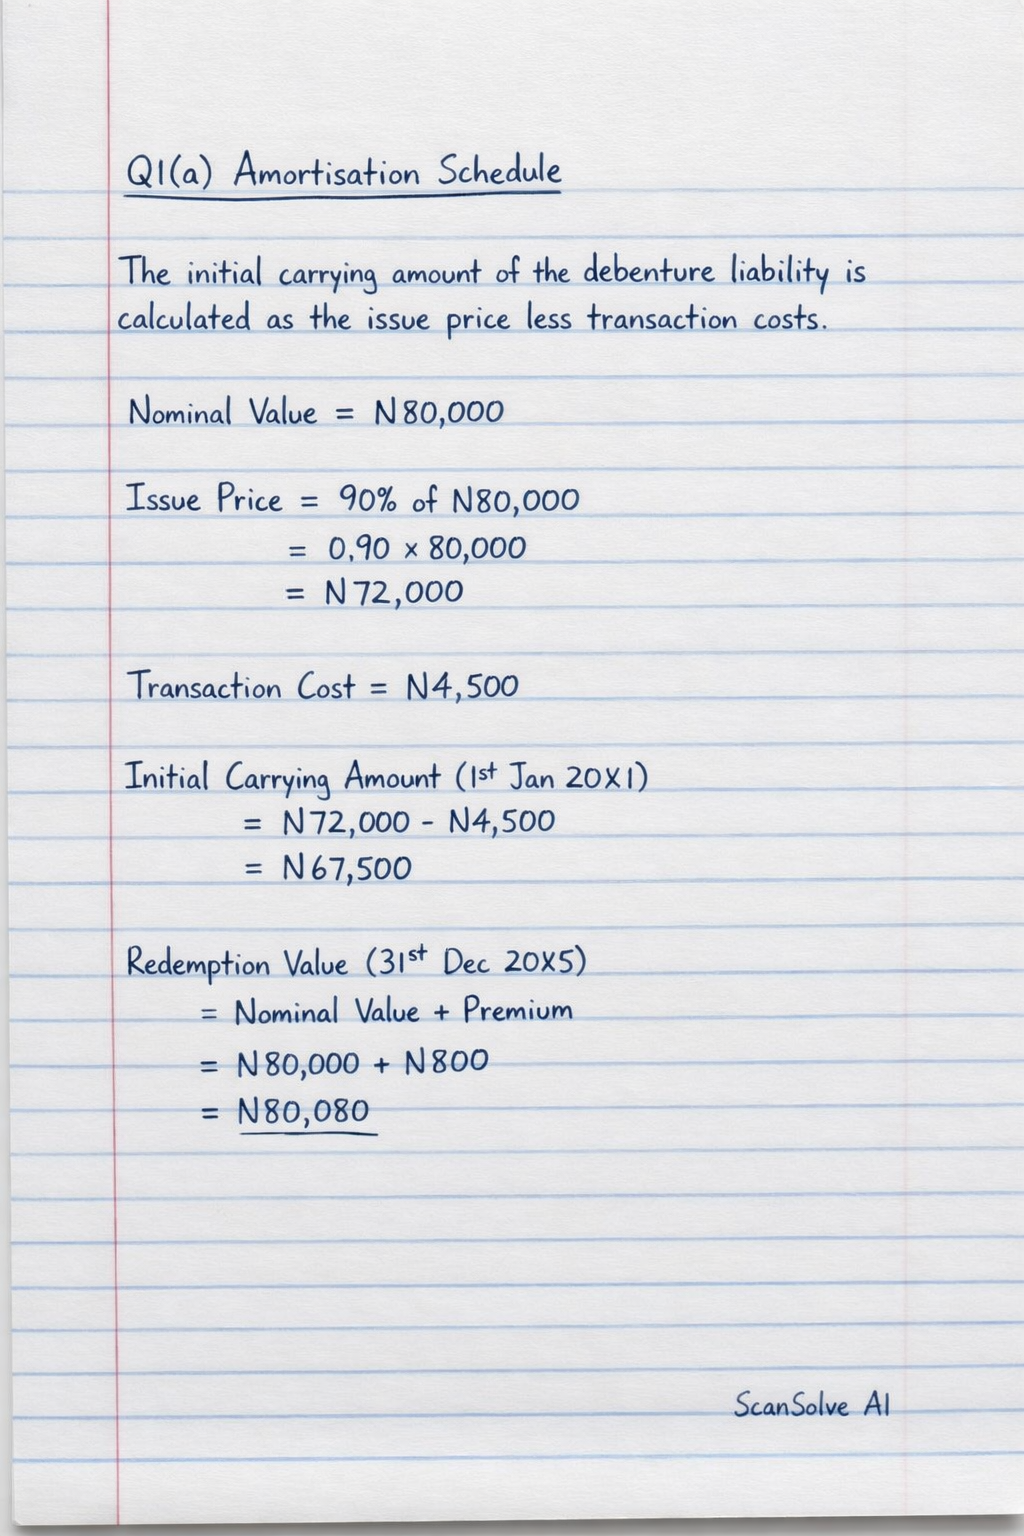 Q1(a) Amortisation Schedule
The initial carrying amount of the debenture liability is
calculated as the issue price less transaction costs.
Nominal Value = N80,000
Issue Price = 90% of N80,000
= 0.90 × 80,000
= N72,000
Transaction Cost = N4,500
Initial Carrying Amount (1st Jan 20X1)
= N72,000 - N4,500
= N67,500
Redemption Value (31st Dec 20X5)
= Nominal Value + Premium
= N80,000 + N800
= N80,080
ScanSolve AI